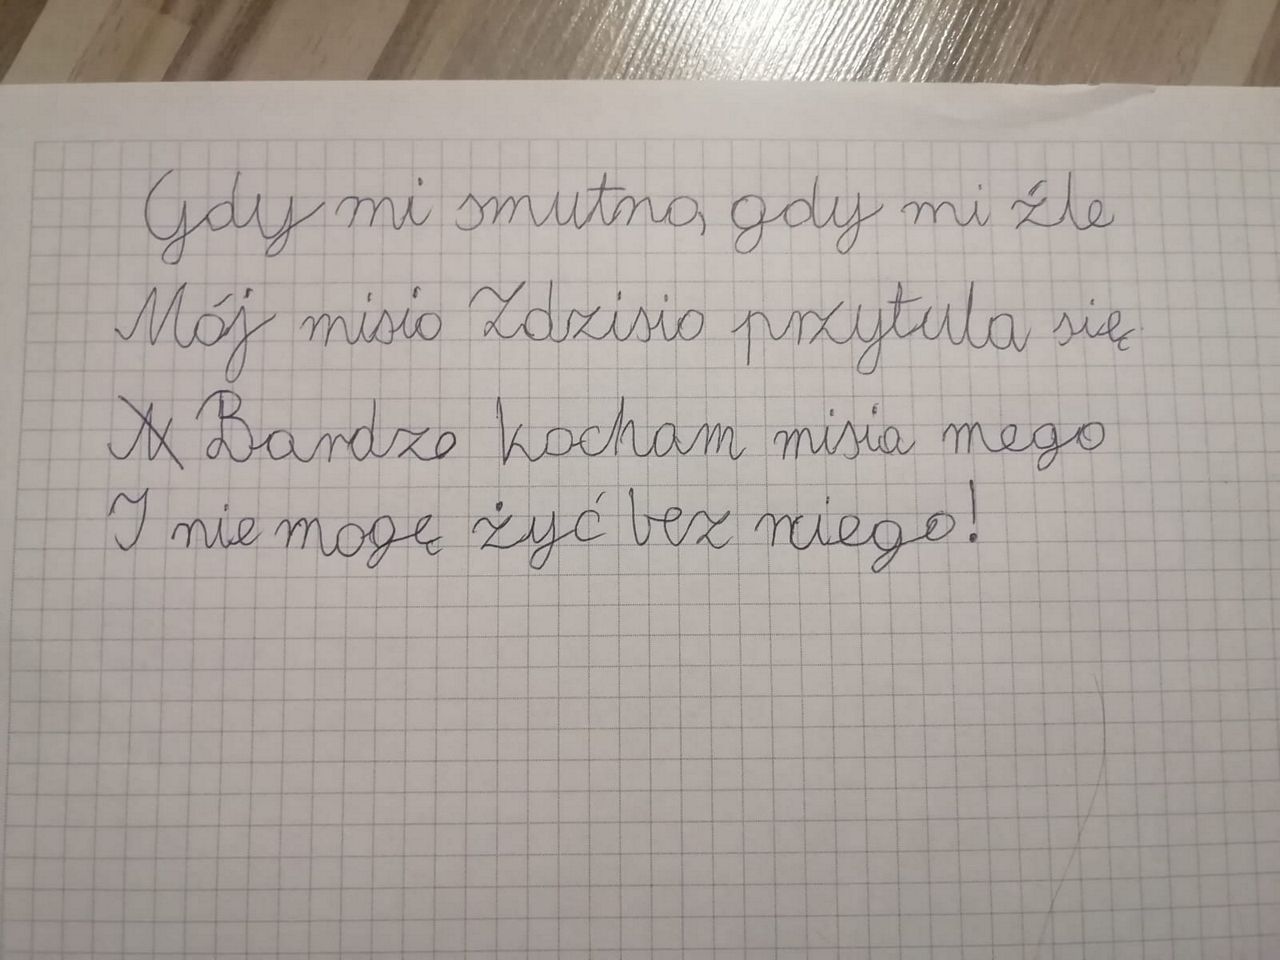 Gdy mi smutno, gdy mi źle
Mój misio Zdzisio przytula się
Bardzo kocham misia mego
I nie mogę żyć bez niego!